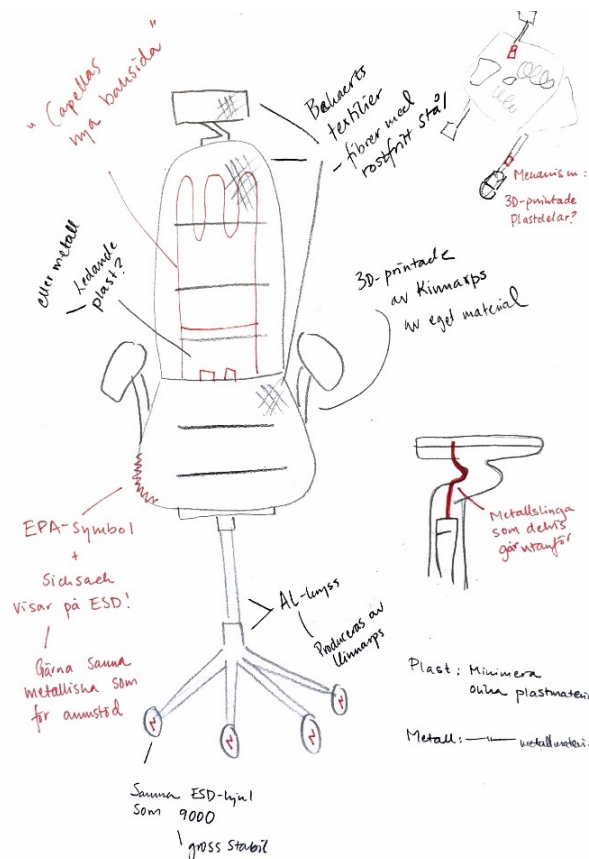 "Capellas
nya baksida"
Bekaerts
textilier
- fibrer med
rostfritt stål
Mekanism:
3D-printade
Plastdelar?
eller metall
Ledande
plast?
3D-printade
av Kinnarps
av eget material
EPA-symbol
+
Sicksack
visar på ESD!
Gärna samma
metalliska som
för armstöd
Metallslinga
som delvis
går utanför
AL-kryss
Produceras av
Kinnarps
Plast: Minimera
olika plastmateri
Metall: —"— metallmateri
Samma ESD-hjul
som 9000
gross stabil